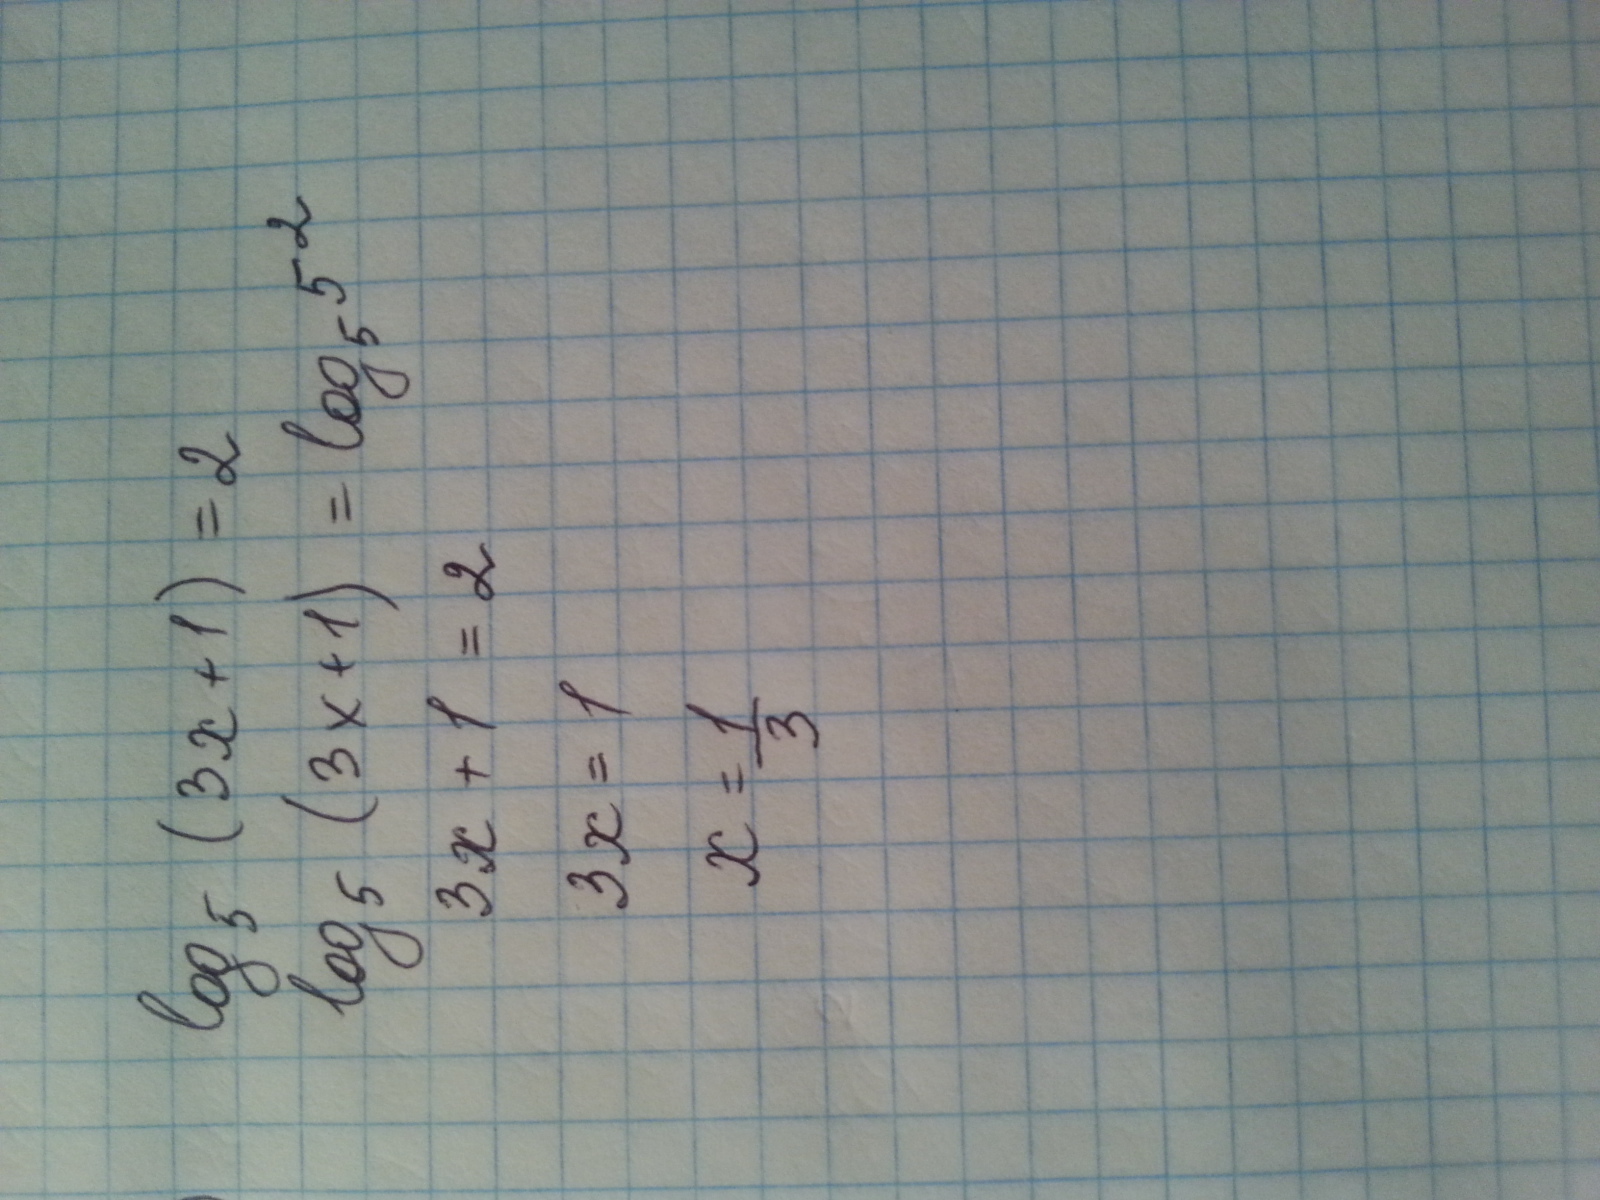 log₅ (3x+1) = 2
log₅ (3x+1) = log₅ 5²
3x + 1 = 2
3x = 1
x = 1/3